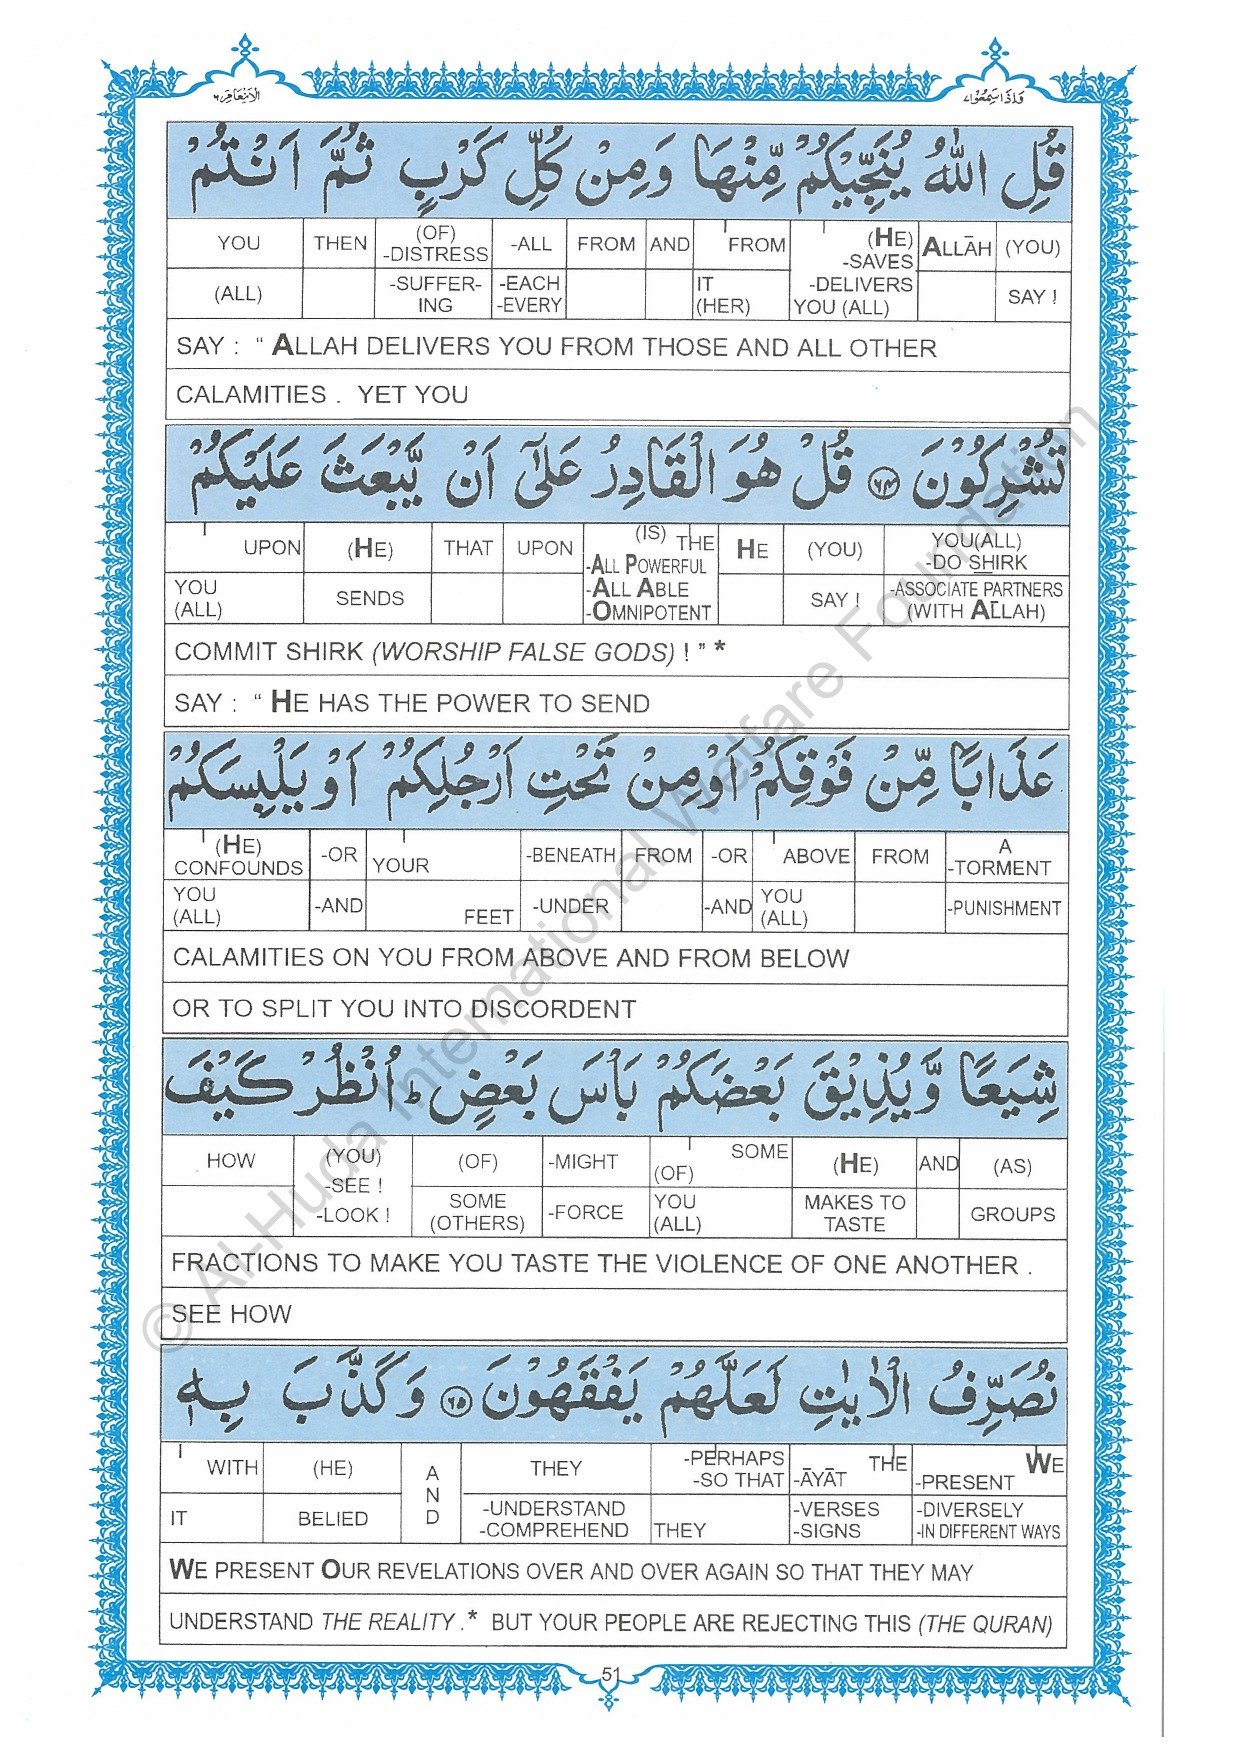 وَاِذَا سَمِعُوْا۷ الْاَنْعَام۶
قُلِ اللّٰهُ يُنَجِّيْكُمْ مِّنْهَا وَمِنْ كُلِّ كَرْبٍ ثُمَّ اَنْتُمْ
YOU THEN (OF) -DISTRESS -ALL FROM AND FROM (HE) -SAVES ALLĀH (YOU)
(ALL) -SUFFER-ING -EACH -EVERY IT (HER) -DELIVERS YOU (ALL) SAY !
SAY : “ ALLAH DELIVERS YOU FROM THOSE AND ALL OTHER
CALAMITIES . YET YOU
تُشْرِكُوْنَ ۶۴ قُلْ هُوَ الْقَادِرُ عَلٰٓى اَنْ يَّبْعَثَ عَلَيْكُمْ
UPON (HE) THAT UPON (IS) THE -ALL POWERFUL HE (YOU) YOU(ALL) -DO SHIRK
YOU (ALL) SENDS -ALL ABLE -OMNIPOTENT SAY ! -ASSOCIATE PARTNERS (WITH ALLAH)
COMMIT SHIRK (WORSHIP FALSE GODS) ! ” *
SAY : “ HE HAS THE POWER TO SEND
عَذَابًا مِّنْ فَوْقِكُمْ اَوْ مِنْ تَحْتِ اَرْجُلِكُمْ اَوْ يَلْبِسَكُمْ
(HE) CONFOUNDS -OR YOUR -BENEATH FROM -OR ABOVE FROM A -TORMENT
YOU (ALL) -AND FEET -UNDER -AND YOU (ALL) -PUNISHMENT
CALAMITIES ON YOU FROM ABOVE AND FROM BELOW
OR TO SPLIT YOU INTO DISCORDENT
شِيَعًا وَّيُذِيْقَ بَعْضَكُمْ بَاْسَ بَعْضٍ ؕ اُنْظُرْ كَيْفَ
HOW (YOU) -SEE ! (OF) -MIGHT (OF) SOME (HE) AND (AS)
-LOOK ! SOME (OTHERS) -FORCE YOU (ALL) MAKES TO TASTE GROUPS
FRACTIONS TO MAKE YOU TASTE THE VIOLENCE OF ONE ANOTHER .
SEE HOW
نُصَرِّفُ الْاٰيٰتِ لَعَلَّهُمْ يَفْقَهُوْنَ ۶۵ وَكَذَّبَ بِهٖ
WITH (HE) AND THEY -PERHAPS -SO THAT THE -ĀYĀT WE -PRESENT
IT BELIED -UNDERSTAND -COMPREHEND THEY -VERSES -SIGNS -DIVERSELY -IN DIFFERENT WAYS
WE PRESENT OUR REVELATIONS OVER AND OVER AGAIN SO THAT THEY MAY
UNDERSTAND THE REALITY .* BUT YOUR PEOPLE ARE REJECTING THIS (THE QURAN)
51
© Al-Huda International Welfare Foundation